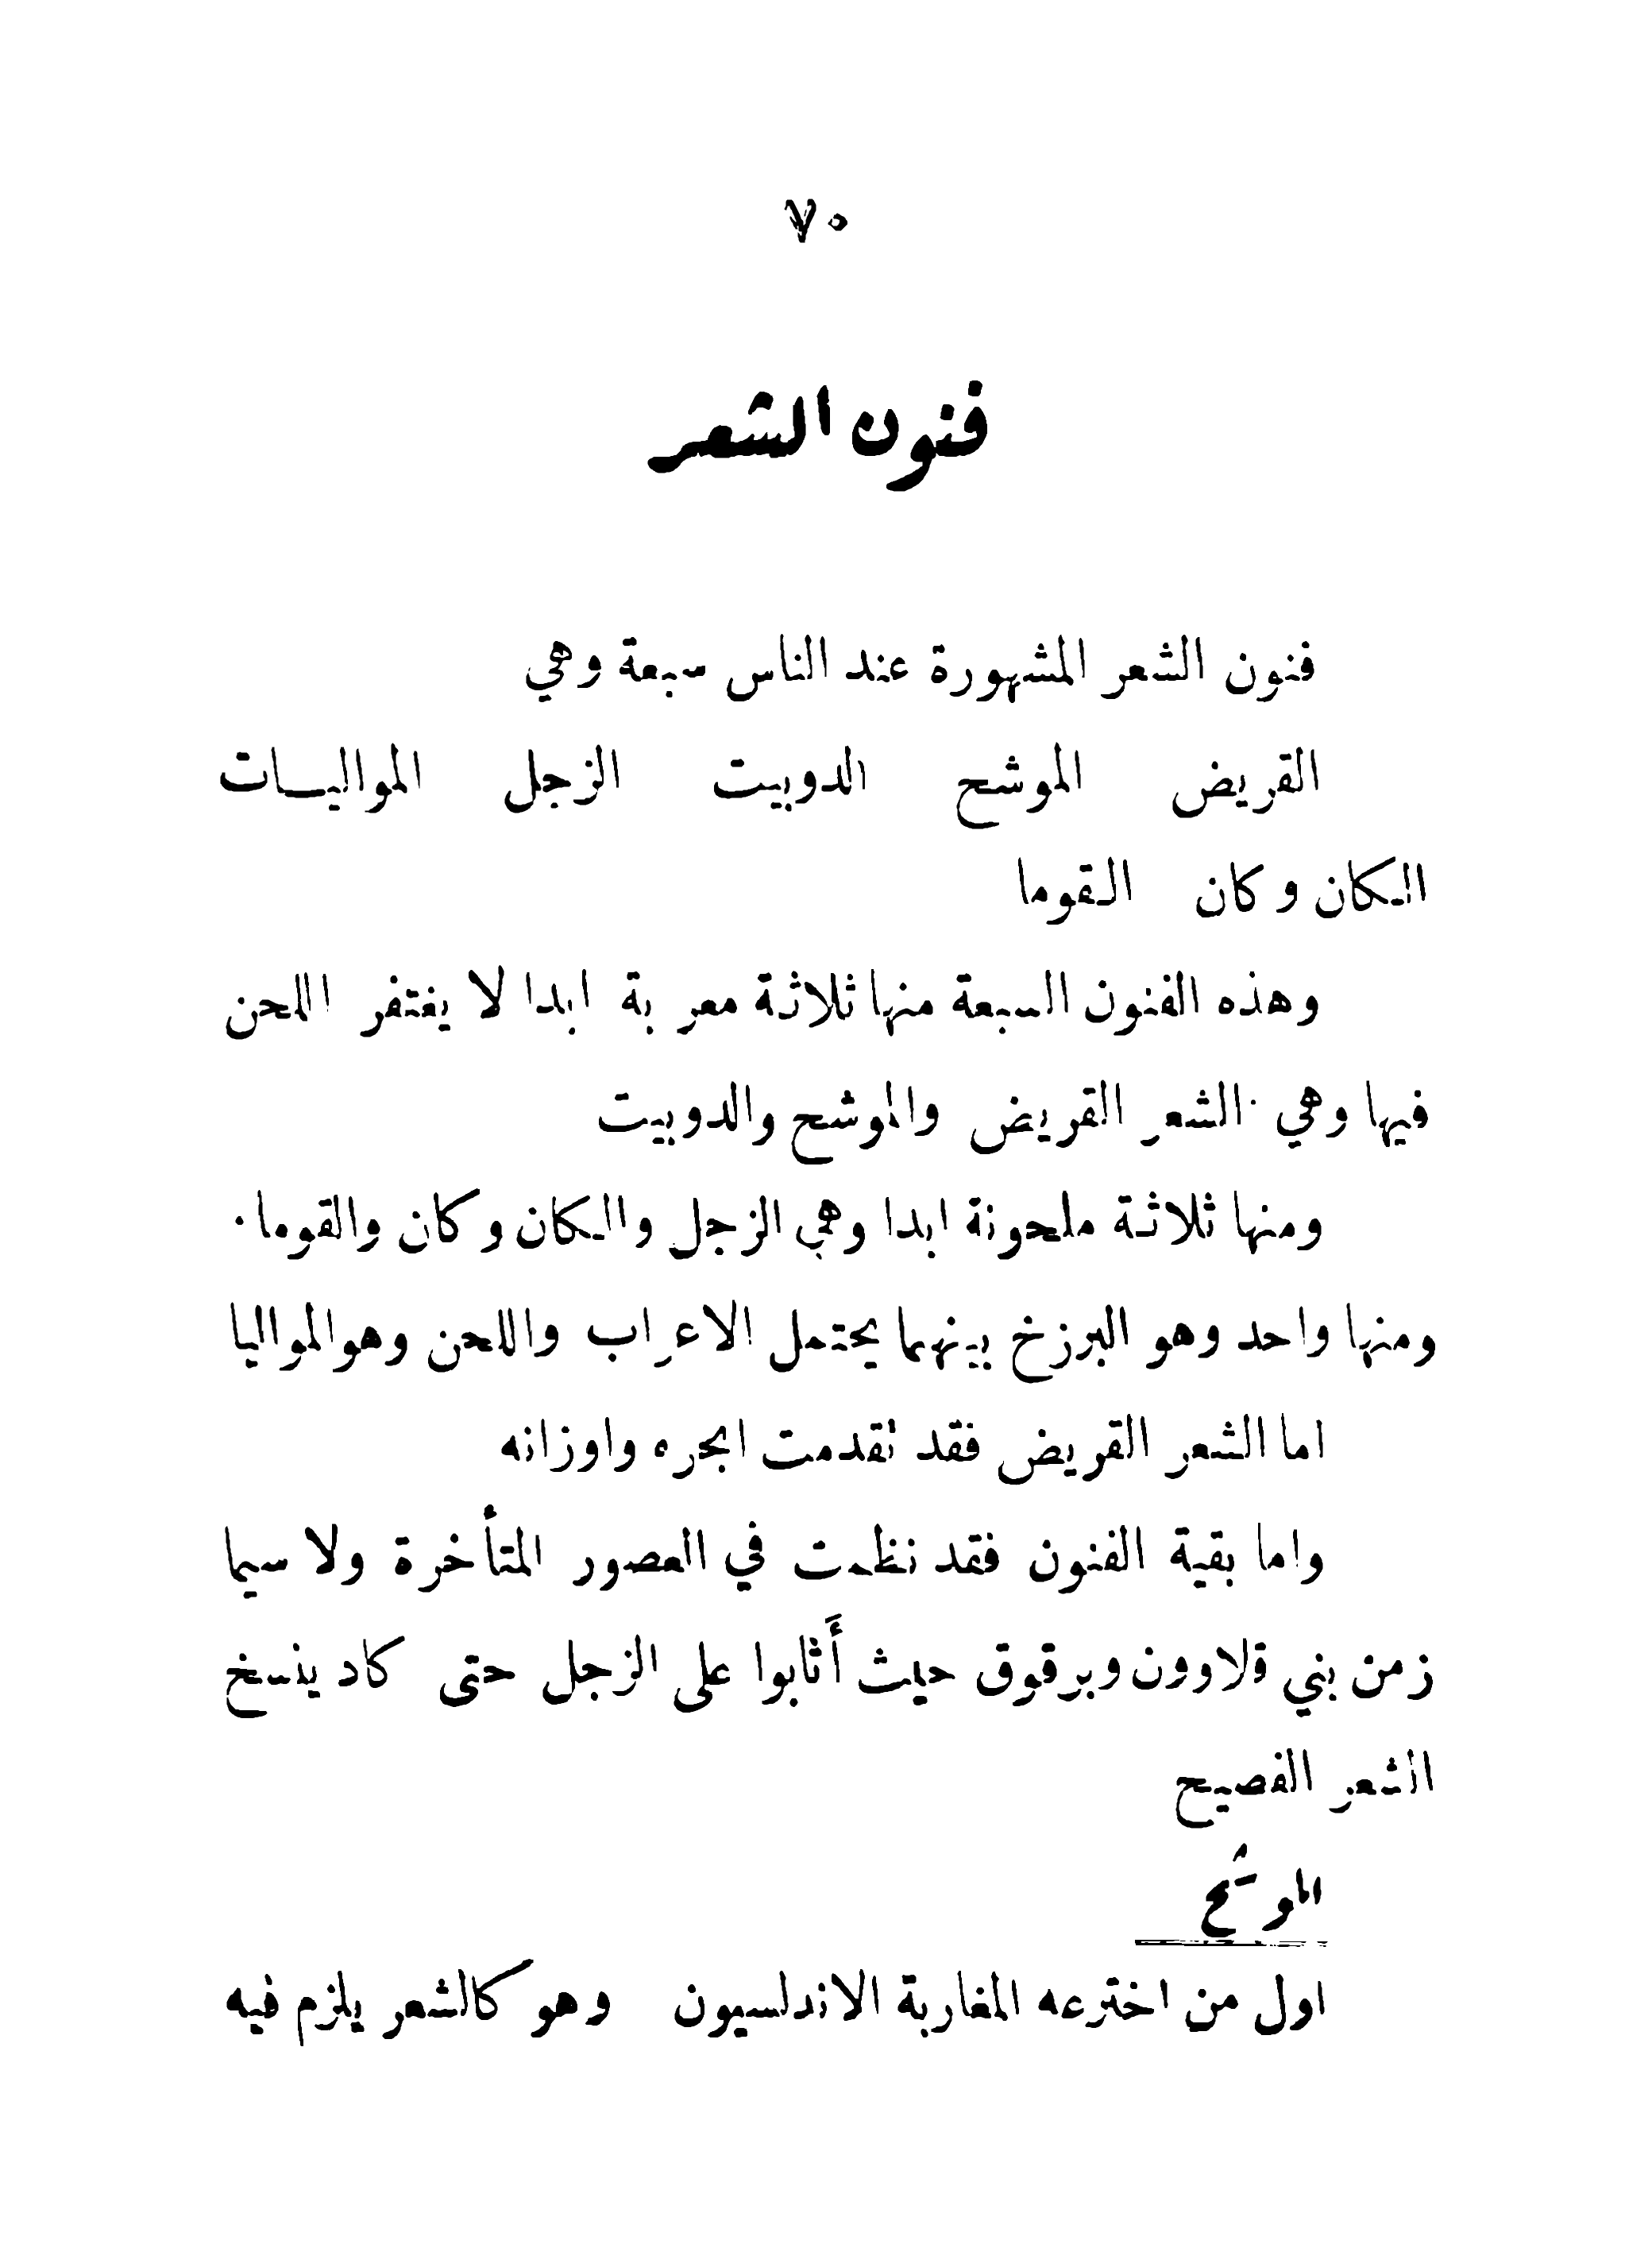 ٧٠
فنون الشعر
فنون الشعر المشهورة عند الناس سبعة وهي
القريض الموشح الدوبيت الزجل المواليات
الكان وكان القوما
وهذه الفنون السبعة منها ثلاثة معربة ابدا لا يغتفر اللحن
فيها وهي الشعر القريض والموشح والدوبيت
ومنها ثلاثة ملحونة ابدا وهي الزجل والكان وكان والقوما.
ومنها واحد وهو البرزخ بينهما يحتمل الاعراب واللحن وهو المواليا
اما الشعر القريض فقد تقدمت ابحره واوزانه
واما بقية الفنون فقد نظمت في العصور المتأخرة ولا سيما
زمن بني قلاوون وبرقوق حيث أَثابوا على الزجل حتى كاد ينسخ
الشعر الفصيح
الموشح
اول من اخترعه المغاربة الاندلسيون وهو كالشعر يلزم فيه